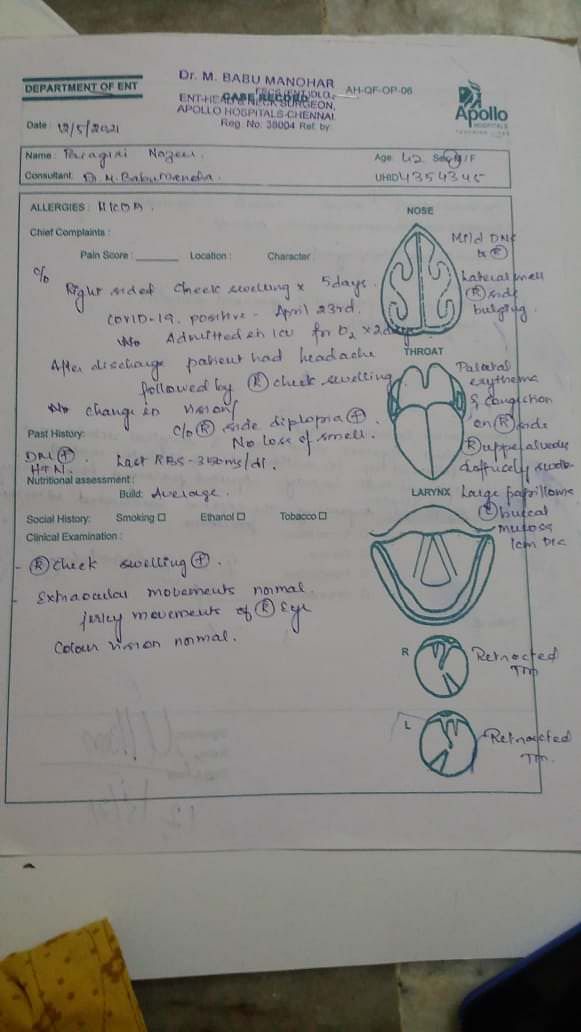 DEPARTMENT OF ENT
Dr. M. BABU MANOHAR
CASE RECORD
ENT-HEAD & NECK SURGEON,
APOLLO HOSPITALS-CHENNAI
Reg. No: 39004 Ref. by:
AH-QF-OP-06
Apollo
HOSPITALS
TOUCHING LIVES
Date: 12/5/2021
Name: Nazeer. Age: 42 Sex: M/F
Consultant: Dr. M. Babu Manohar UHID 4354345
ALLERGIES: NKDA.
NOSE
Chief Complaints:
Mild DNS
to (R)
Pain Score: Location: Character:
Lateral wall
(R) side
bulging.
c/o Right sided cheek swelling x 5 days.
COVID-19 positive - April 23rd.
Admitted in ICU for O2 x 2 days
After discharge patient had headache
followed by (R) cheek swelling
No change in vision/
c/o (R) side diplopia (+).
No loss of smell.
THROAT
Palatal
erythema
& congestion
on (R) side
(R) upper alveolus
diffusely
Past History:
DM (+). Last RBS - 350mg/dl.
HTN.
Nutritional assessment:
Build: Average.
LARYNX
Large papilloma
buccal
mucosa
1cm
Social History: Smoking ☐ Ethanol ☐ Tobacco ☐
Clinical Examination:
- (R) cheek swelling (+).
- Extraocular movements normal
jerky movements of (R) Eye
Colour vision normal.
R Retracted
TM
L Retracted
TM.